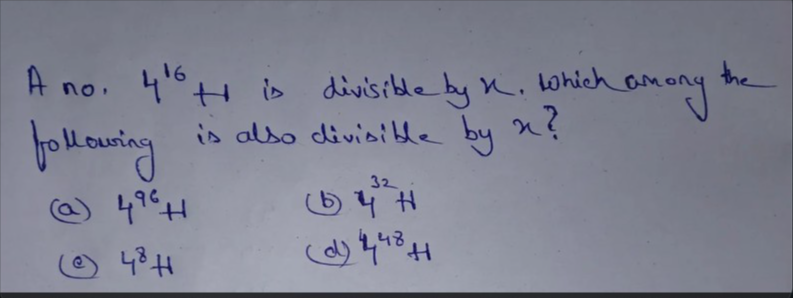 A no. 4¹⁶+1 is divisible by x. Which among the
following is also divisible by x?
(a) 4⁹⁶+1 (b) 4³²+1
(c) 4⁸+1 (d) 4⁴⁸+1